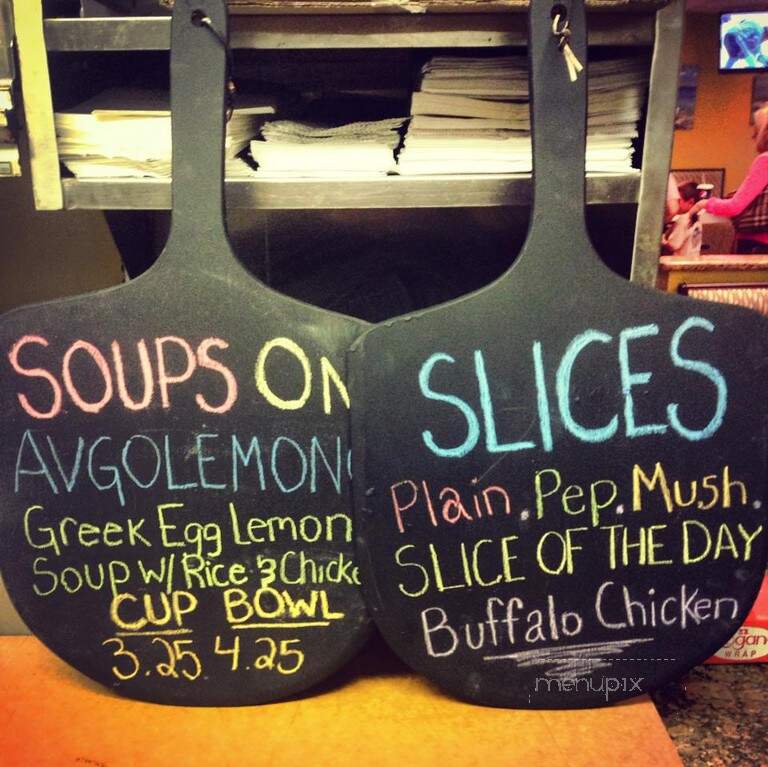 SOUPS ON
AVGOLEMON
Greek Egg Lemon
Soup W/ Rice & Chicke
CUP BOWL
3.25 4.25
SLICES
Plain. Pep. Mush.
SLICE OF THE DAY
Buffalo Chicken
menupix
WRAP